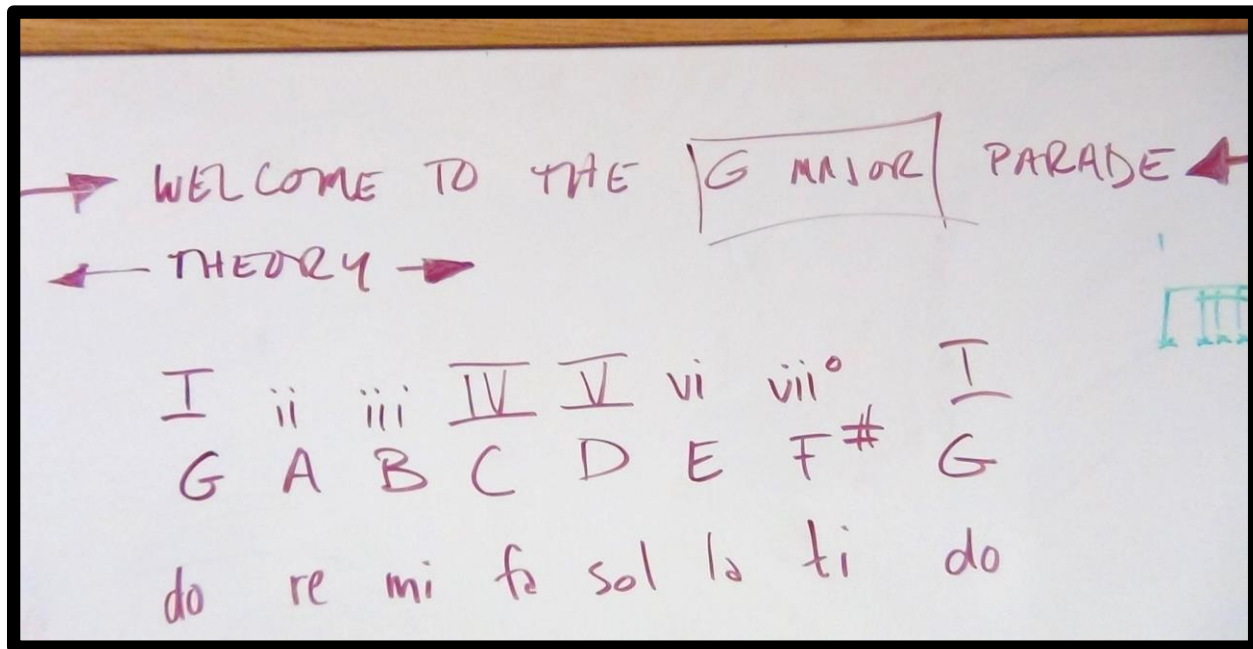 WELCOME TO THE G MAJOR PARADE
THEORY
I ii iii IV V vi vii° I
G A B C D E F# G
do re mi fa sol la ti do